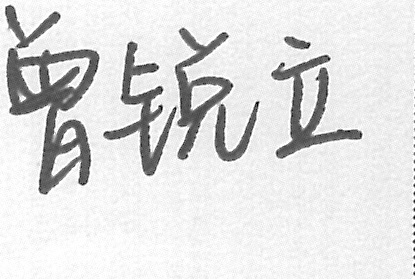 曾锐立